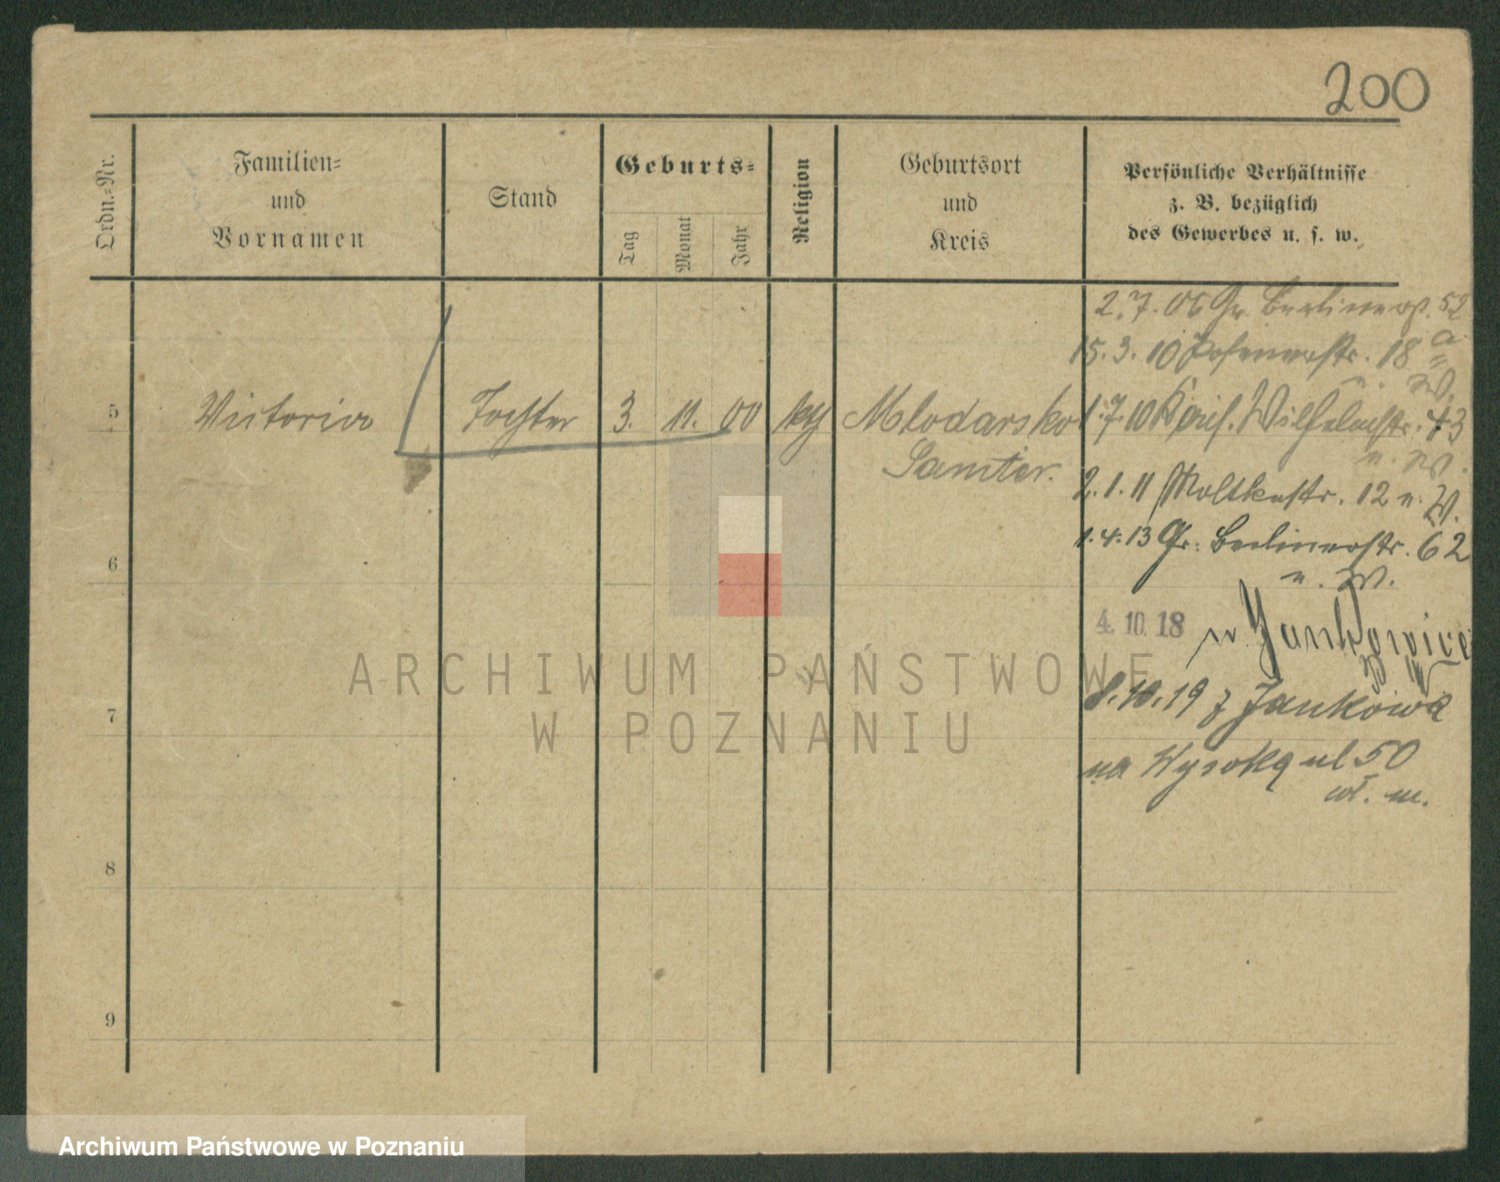 200
Ordn.-Nr.
Familien-
und
Vornamen
Stand
Geburts-
Tag
Monat
Jahr
Religion
Geburtsort
und
Kreis
Persönliche Verhältnisse
z. B. bezüglich
des Gewerbes u. s. w.
2.7.06 Gr. Berlinerstr. 52
15.3.10 Posenerstr. 18 a
u. W.
5 Victoria Tochter 3. 11. 00 kth Mlodarsko 1.7.10 Kais. Wilhelmstr. 43
Samter. u. W.
2.1.11 Moltkestr. 12 u. W.
1.4.13 Gr. Berlinerstr. 62
u. W.
6
4.10.18 n Jankowice
8.10.19 z Jankowa
7
na Wysoką ul 50
wł. m.
8
9
ARCHIWUM PAŃSTWOWE
W POZNANIU
Archiwum Państwowe w Poznaniu